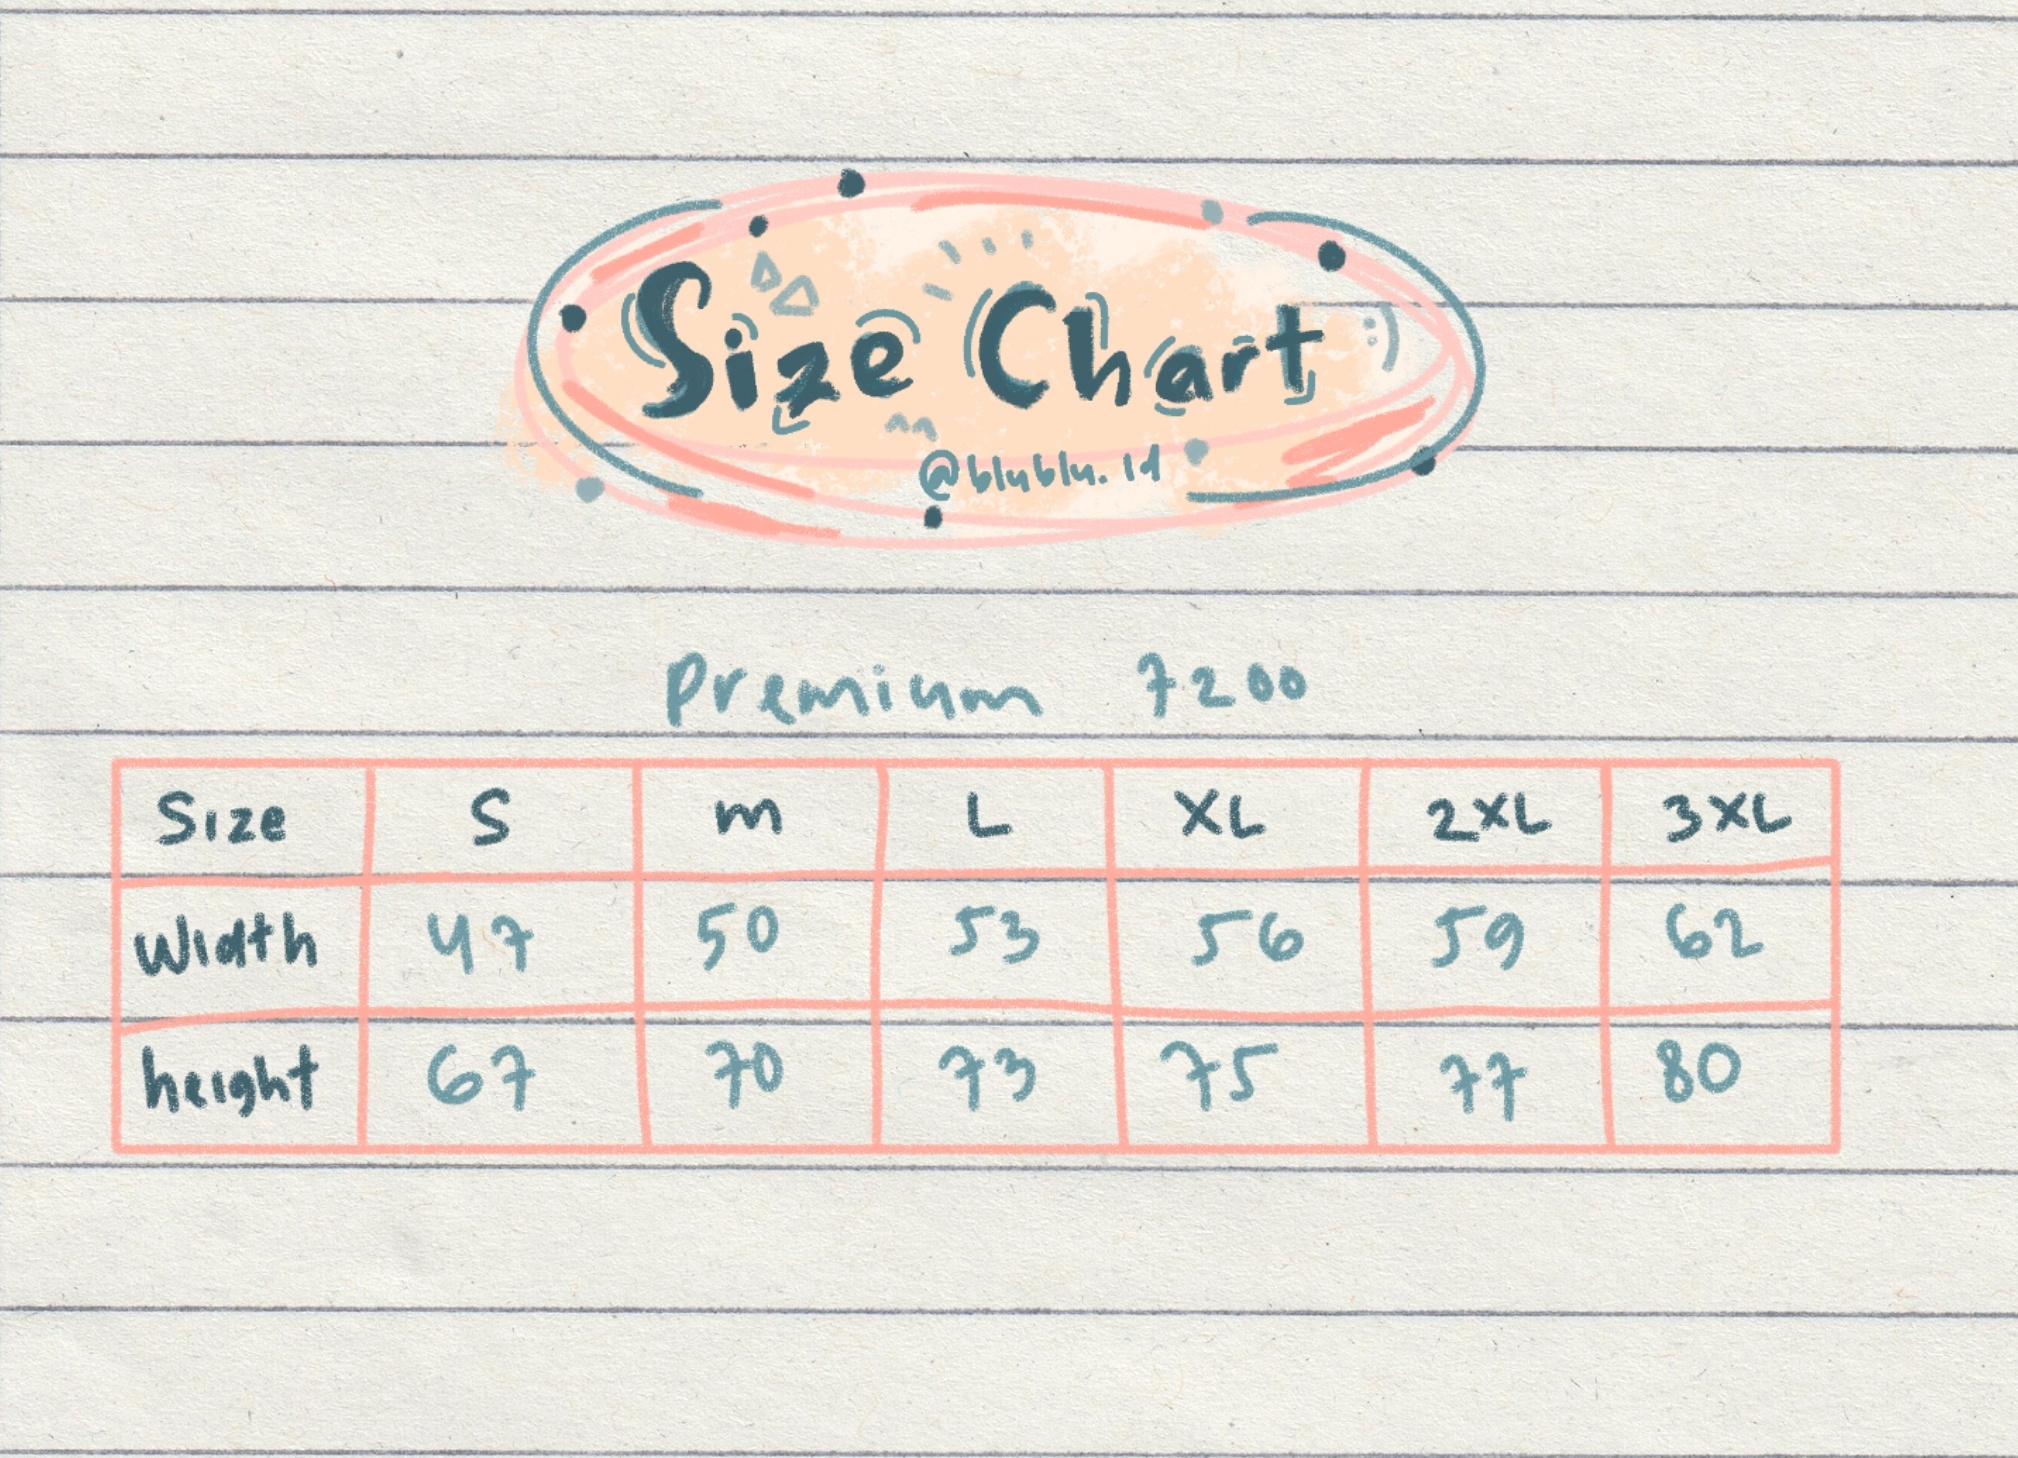 Size Chart
@blublu.id
Premium 7200
Size S m L XL 2XL 3XL
Width 47 50 53 56 59 62
height 67 70 73 75 77 80